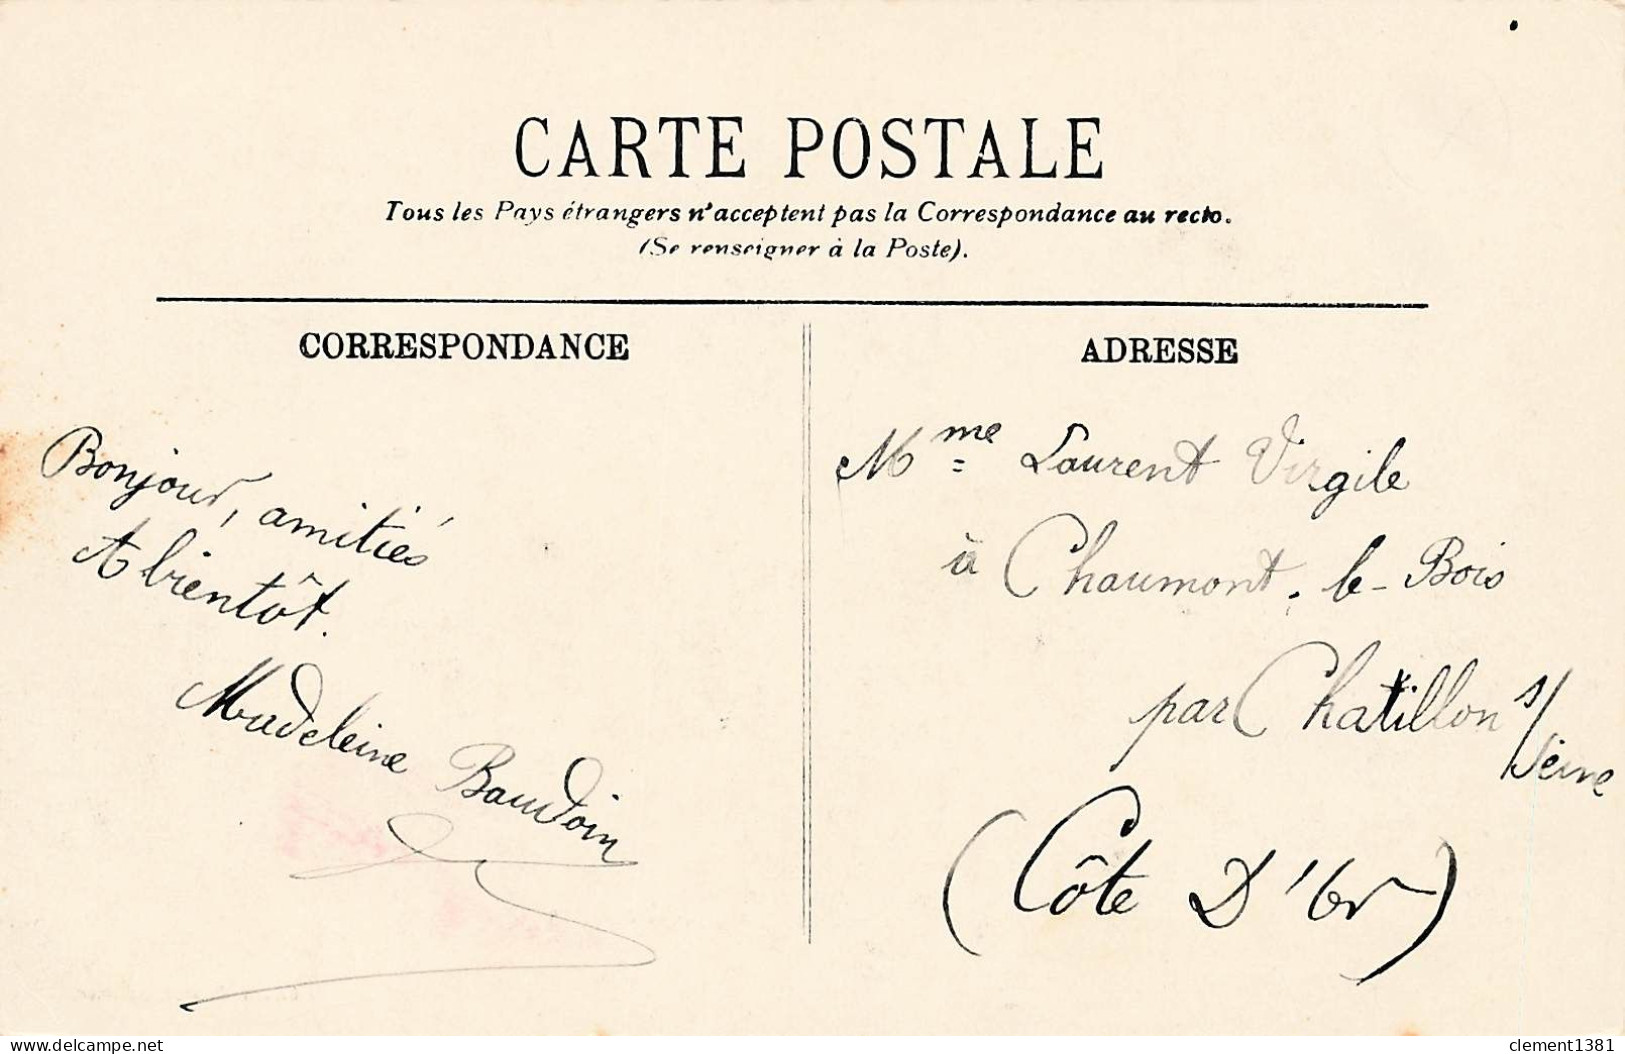 CARTE POSTALE
Tous les Pays étrangers n'acceptent pas la Correspondance au recto.
(Se renseigner à la Poste).
CORRESPONDANCE
Bonjour, amitiés
A bientôt.
Madeleine Baudoin
ADRESSE
Mme Laurent Virgile
à Chaumont-le-Bois
par Chatillon s/Seine
(Côte D'Or)
delcampe.net
clement1381